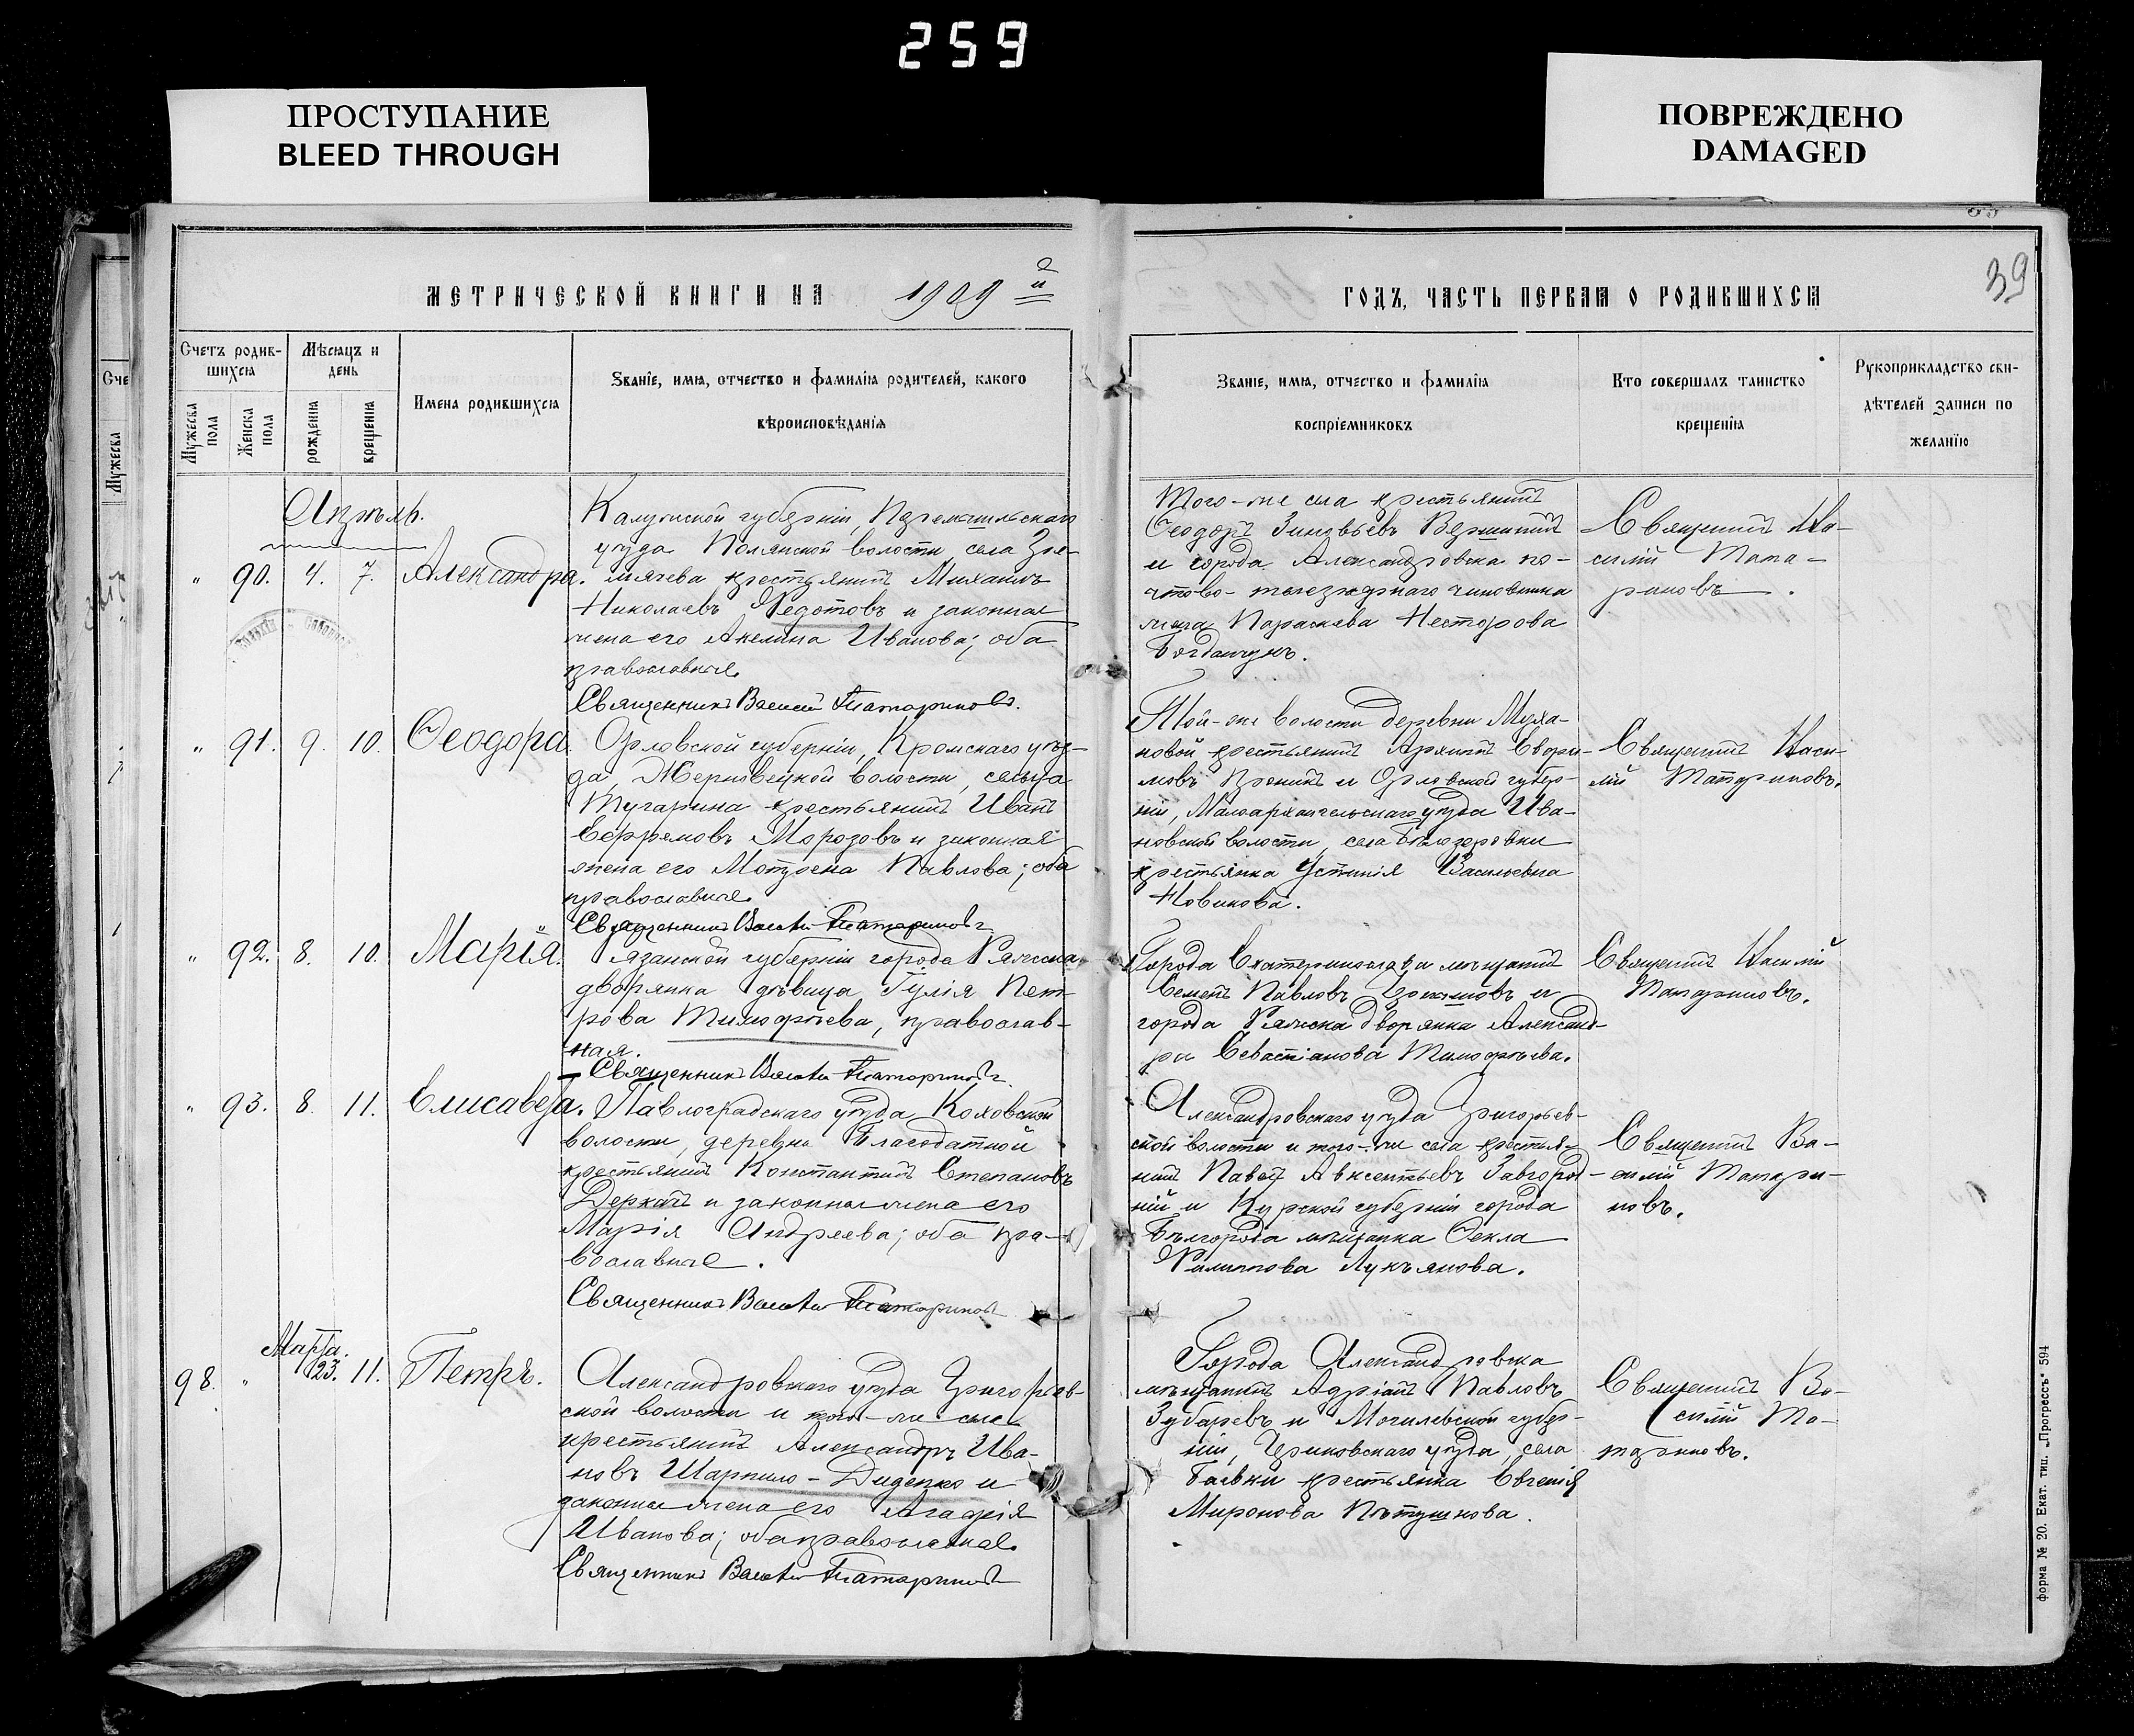 259
ПРОСТУПАНИЕ
BLEED THROUGH
ПОВРЕЖДЕНО
DAMAGED
39
МЕТРИЧЕСКОЙ КНИГИ НА 1909й
ГОДЪ, ЧАСТЬ ПЕРВАЯ О РОДИВШИХСЯ
Счетъ родив-
шихся
Мужеска
пола
Женска
пола
Мѣсяцъ и
день
рожденія
крещенія
Имена родившихся
Званіе, имя, отчество и фамилія родителей, какого
вѣроисповѣданія
Званіе, имя, отчество и фамилія
воспріемниковъ
Кто совершалъ таинство
крещенія
Рукоприкладство сви-
дѣтелей записи по
желанію
Апрѣль.
" 90. 4. 7. Александра.
Калужской губерніи, Перемышльскаго
уѣзда Полянской волости, села
крестьянинъ Михаилъ
Николаевъ Ѳедотовъ и законная
жена его Акелина Иванова; оба
православные.
Священникъ Василій Татариновъ.
Того-же села крестьянинъ
Ѳеодоръ Зиновьевъ Вершининъ
и города Александровска по-
чтово-телеграфнаго чиновника
жена Параскева Несторова
Богданчукъ.
Священникъ Ва-
силій Тата-
риновъ.
" 91. 9. 10. Ѳеодора.
Орловской губерніи, Кромскаго уѣз-
да, Жерновецкой волости, сельца
Тугарина крестьянинъ Иванъ
Ефремовъ Морозовъ и законная
жена его Матрона Павлова; оба
православные.
Священникъ Василій Татариновъ
Той-же волости деревни Муха-
новой крестьянинъ
и Орловской губер-
ніи, Малоархангельскаго уѣзда Ива-
новской волости, села
крестьянка Устинія Васильевна
Новикова.
Священникъ Васи-
лій Татариновъ.
" 92. 8. 10. Марія.
Рязанской губерніи города Ряжска
дворянка дѣвица Юлія Пет-
рова Тимофѣева, православ-
ная.
Священникъ Василій Татариновъ
Города Екатеринослава мѣщанинъ
Семенъ Павловъ и
города Ряжска дворянка Александ-
ра Севастіанова Тимофѣева.
Священникъ Василій
Татариновъ.
" 93. 8. 11. Елисавета.
Павлоградскаго уѣзда, Коховской
волости, деревни Благодатной
крестьянинъ Константинъ Степановъ
Деркачъ и законная жена его
Марія Андреева; оба пра-
вославные.
Священникъ Василій Татариновъ
Александровскаго уѣзда Григорьев-
ской волости и того-же села крестья-
нинъ Павелъ Авксентьевъ Завгород-
ній и Курской губерніи города
Бѣлгорода мѣщанка Ѳекла
Филиппова Лукьянова.
Священникъ Ва-
силій Татари-
новъ.
Марта.
98. " 23. 11. Петръ.
Александровскаго уѣзда Григорьев-
ской волости и того-же села
крестьянинъ Александръ Ива-
новъ Шарпило-Диденко и
законная жена его Агафія
Иванова; оба православные.
Священникъ Василій Татариновъ
Города Александровска
мѣщанинъ Адріанъ Павловъ
Зубаревъ и Могилевской губер-
ніи, Чериковскаго уѣзда, села
крестьянка Евгенія
Миронова Пѣтушкова.
Священникъ Ва-
силій Та-
тариновъ.
форма № 20. Екат. тип. „Прогрессъ“ 594